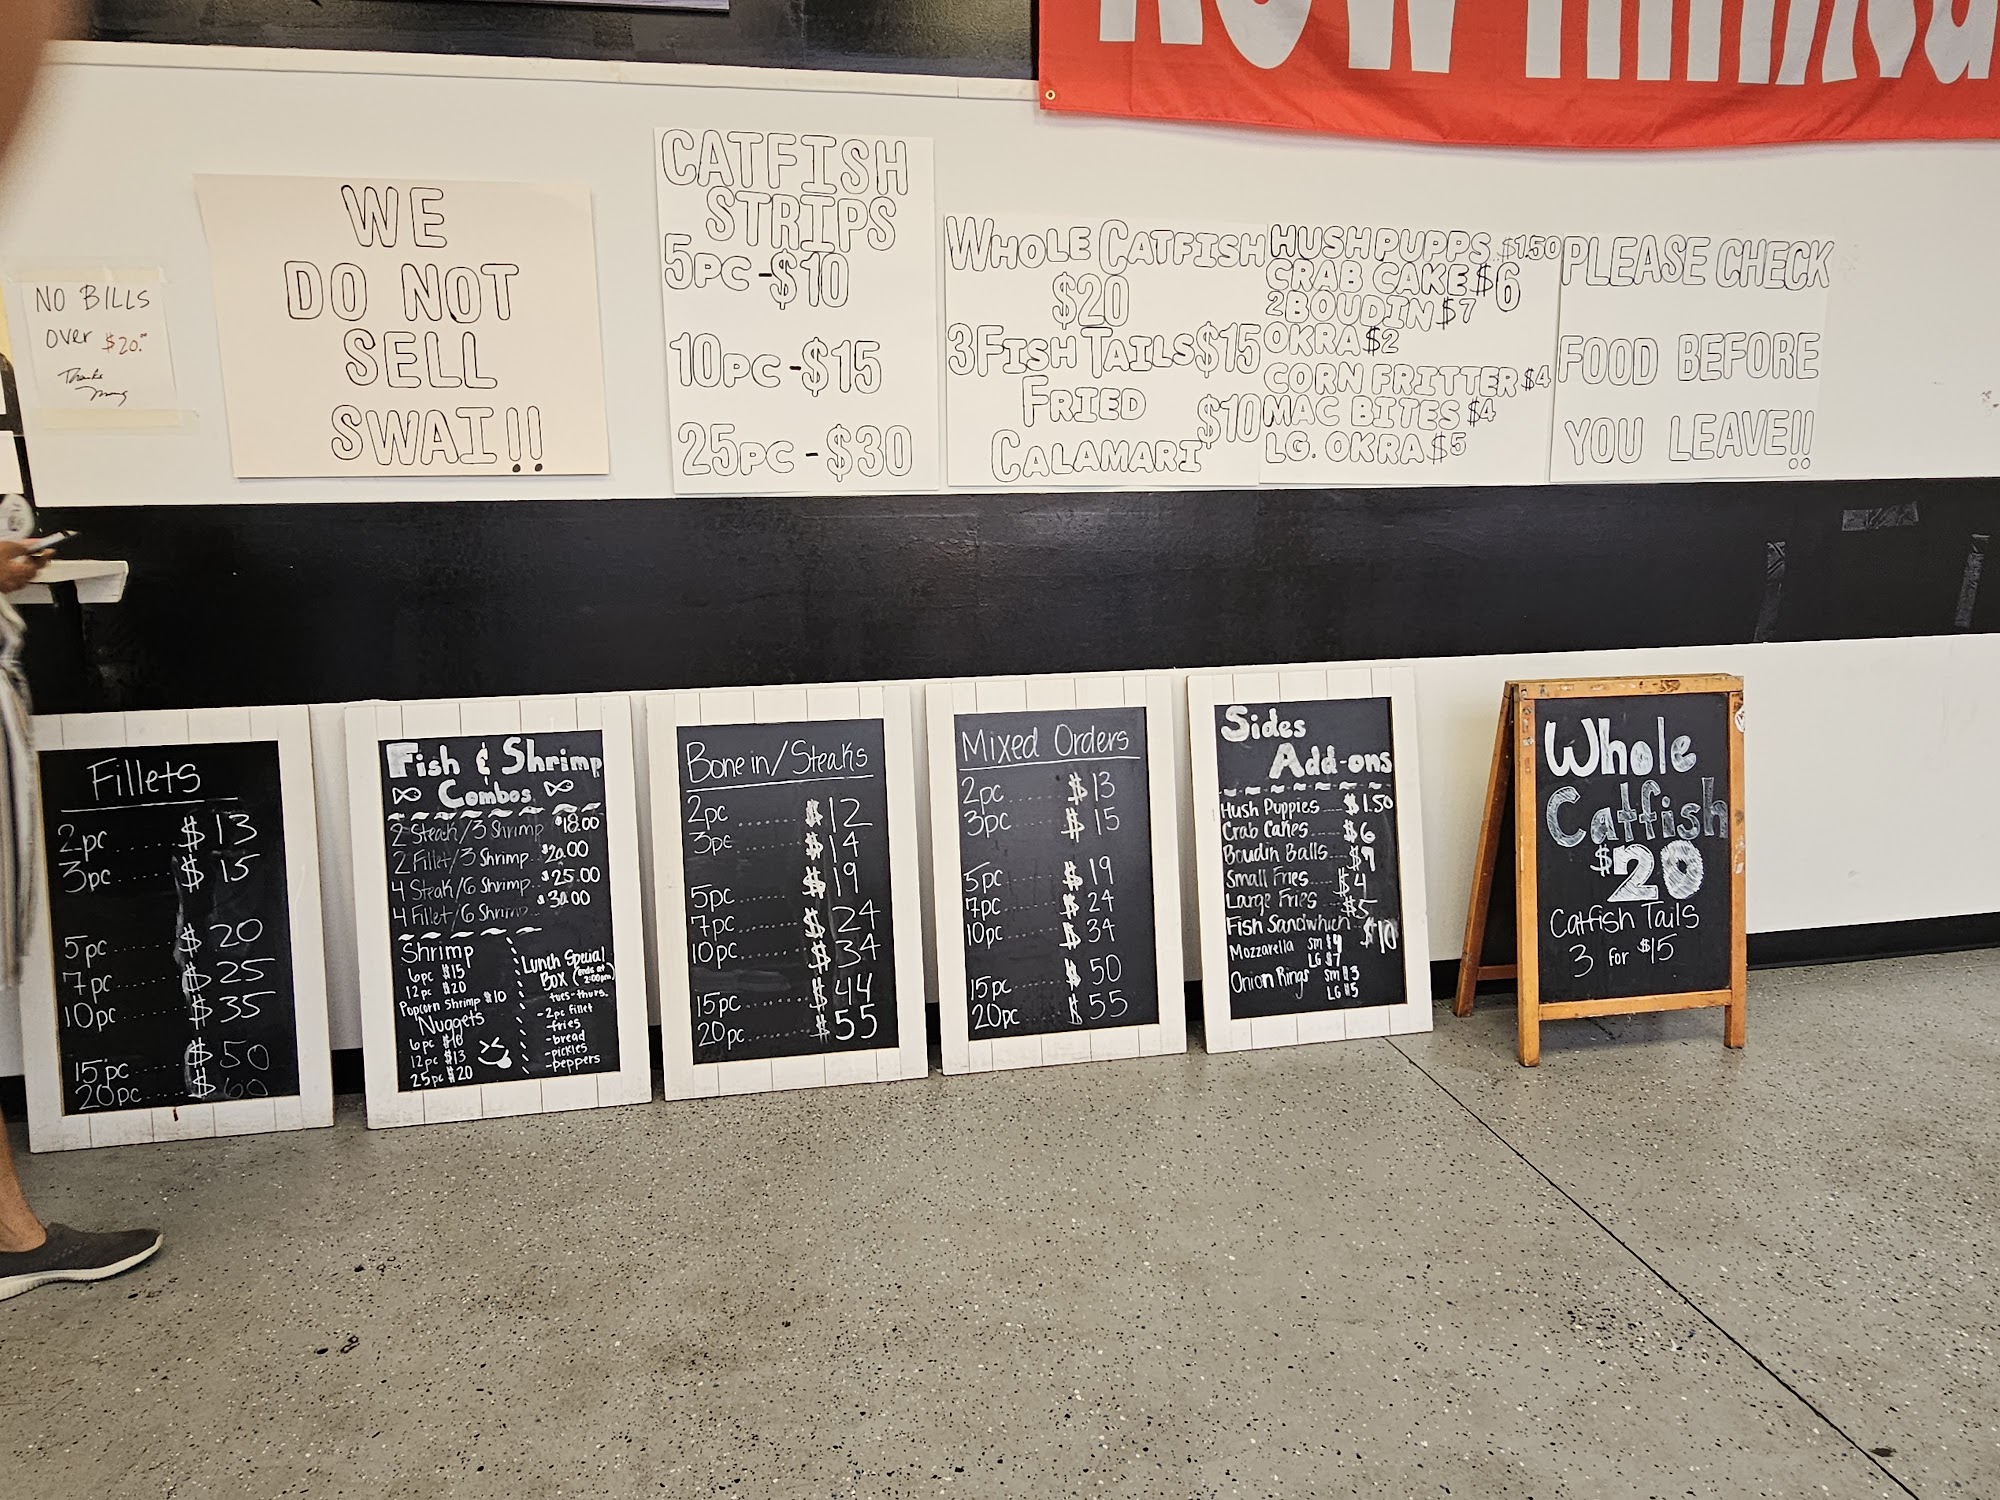 NOW HIRING
NO BILLS
over $20.00
Thanks
WE
DO NOT
SELL
SWAI!!
CATFISH
STRIPS
5PC -$10
10PC -$15
25PC -$30
WHOLE CATFISH
$20
3 FISH TAILS $15
FRIED
CALAMARI $10
HUSHPUPPS $1.50
CRAB CAKE $6
2 BOUDIN $7
OKRA $2
CORN FRITTER $4
MAC BITES $4
LG. OKRA $5
PLEASE CHECK
FOOD BEFORE
YOU LEAVE!!
Fillets
2pc ...... $ 13
3pc ...... $ 15
5pc ...... $ 20
7pc ...... $ 25
10pc ...... $ 35
15pc .... $ 50
20pc .... $ 60
Fish & Shrimp
Combos
2 Steak/3 Shrimp $18.00
2 Fillet/3 Shrimp.. $20.00
4 Steak/6 Shrimp.. $25.00
4 Fillet/6 Shrimp... $30.00
Shrimp
6pc $15
12pc $20
Popcorn Shrimp $10
Nuggets
6pc $10
12pc $13
25pc $20
Lunch Special
Box (ends at 2:00pm)
tues-thurs.
-2pc fillet
-fries
-bread
-pickles
-peppers
Bone in/Steaks
2pc ........ $ 12
3pc ........ $ 14
5pc ....... $ 19
7pc ....... $ 24
10pc ....... $ 34
15pc ....... $ 44
20pc ....... $ 55
Mixed Orders
2pc ...... $ 13
3pc ...... $ 15
5pc ...... $ 19
7pc ...... $ 24
10pc ...... $ 34
15pc ...... $ 50
20pc ...... $ 55
Sides
Add-ons
Hush Puppies .... $1.50
Crab Cakes ..... $6
Boudin Balls .... $7
Small Fries .... $4
Large Fries .... $5
Fish Sandwhich $10
Mozzarella sm $4
LG $7
Onion Rings sm $3
LG $5
Whole
Catfish
$20
Catfish Tails
3 for $15